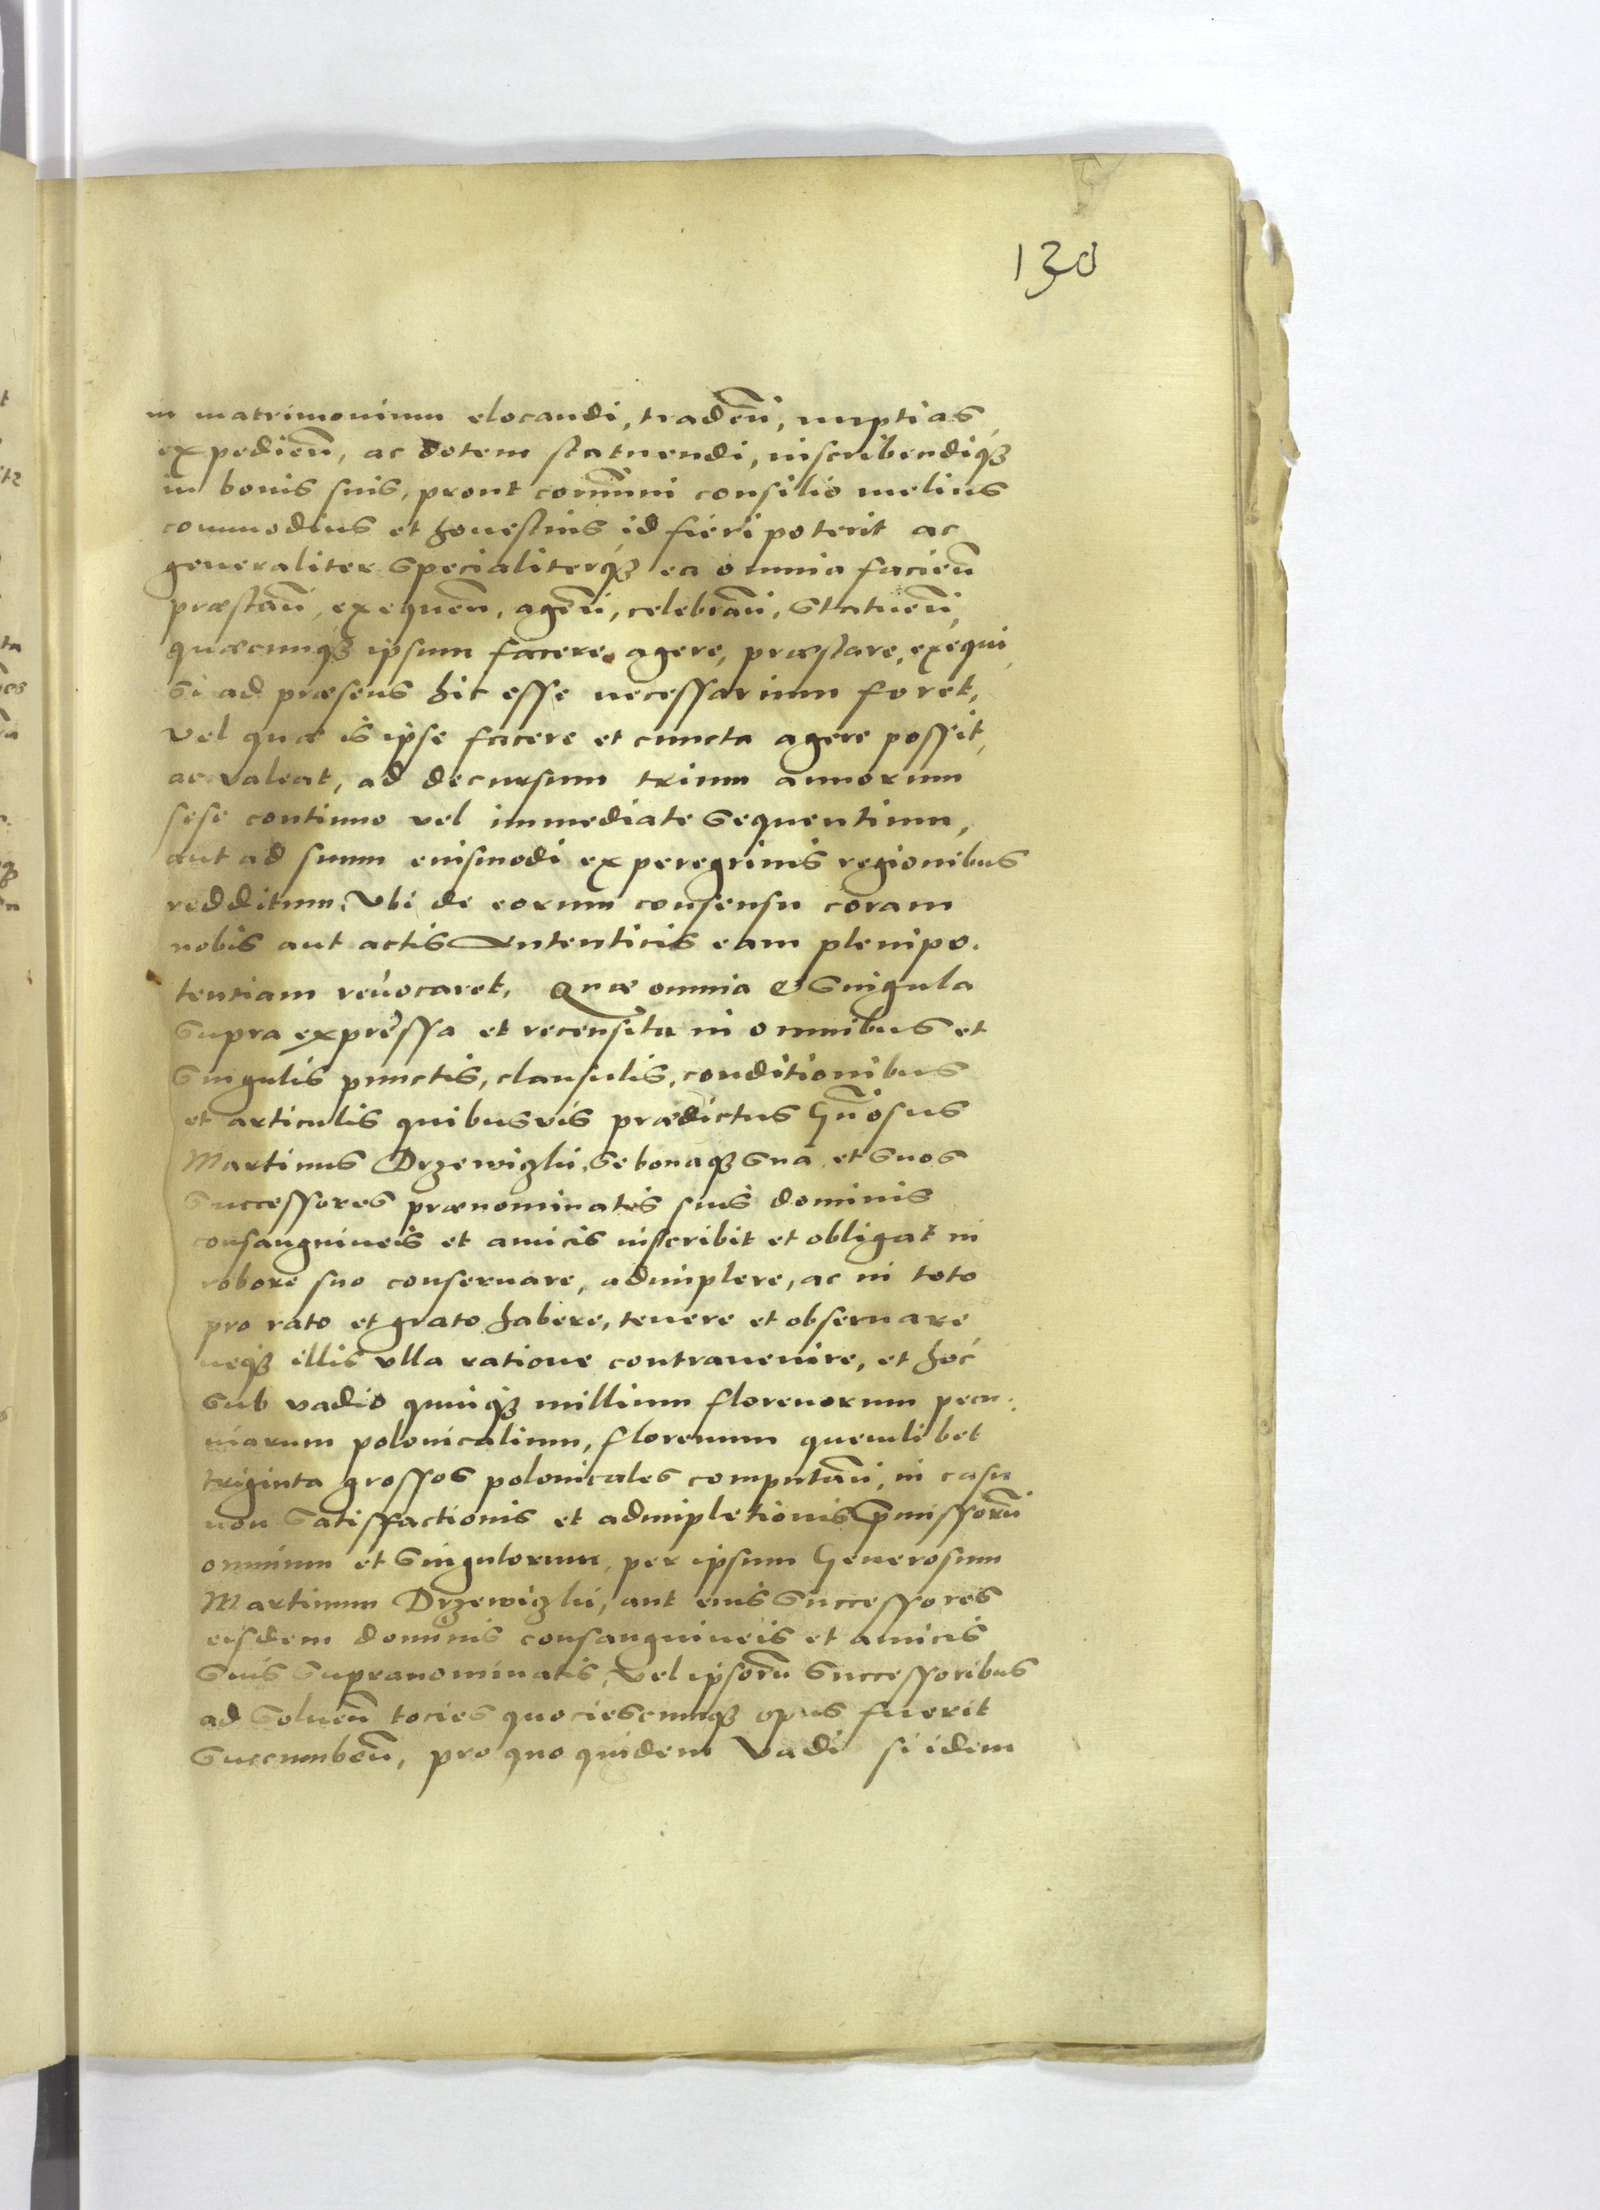 130
in matrimonium elocandi, traden̄, nuptias,
expedien̄, ac dotem statuendi, inscribendiqȝ
in bonis suis, prout com̄uni consilio melius
commodius et honestius, id fieri poterit ac
generaliter specialiterqȝ ea omnia facien̄
præstan̄, exequen̄, agen̄, celebran̄, statuen̄,
quæcunqȝ ipsum facere, agere, præstare, exequi,
si ad præsens hic esse necessarium foret,
vel quæ is ipse facere et cuncta agere possit,
ac valeat, ad decursum trium annorum
sese continuo vel immediate sequentium,
aut ad suum eiusmodi ex peregrinis regionibus
redditum, Vbi de eorum consensu coram
nobis aut actis autenticis eam plenipo.
tentiam reuocaret. Quæ omnia & singula
supra expressa et recensita in omnibus et
singulis punctis, clausulis, conditionibus
et articulis quibusvis prædictus Gn̄osus
Martinus Drzewiczki, se bonaqȝ sua et suos
successores prænominatis suis dominis
consanguineis et amicis inscribit et obligat in
robore suo conseruare, adimplere, ac in toto
pro rato et grato habere, tenere et obseruare
neqȝ illis vlla ratione contrauenire, et hoc
sub vadio quinqȝ millium florenorum pecu.
niarum polonicalium, florenum quemlibet
triginta grossos polonicales computan̄, in casu
non satisfactionis et adimpletionis p̄missorū
omnium et singulorum, per ipsum Generosum
Martinum Drzewiczki, aut eius successores
eisdem dominis consanguineis et amicis
suis supranominatis, vel ipsorū successoribus
ad soluen̄ tocies quociescunqȝ opus fuerit
succumben̄, pro quo quidem Vadi si idem